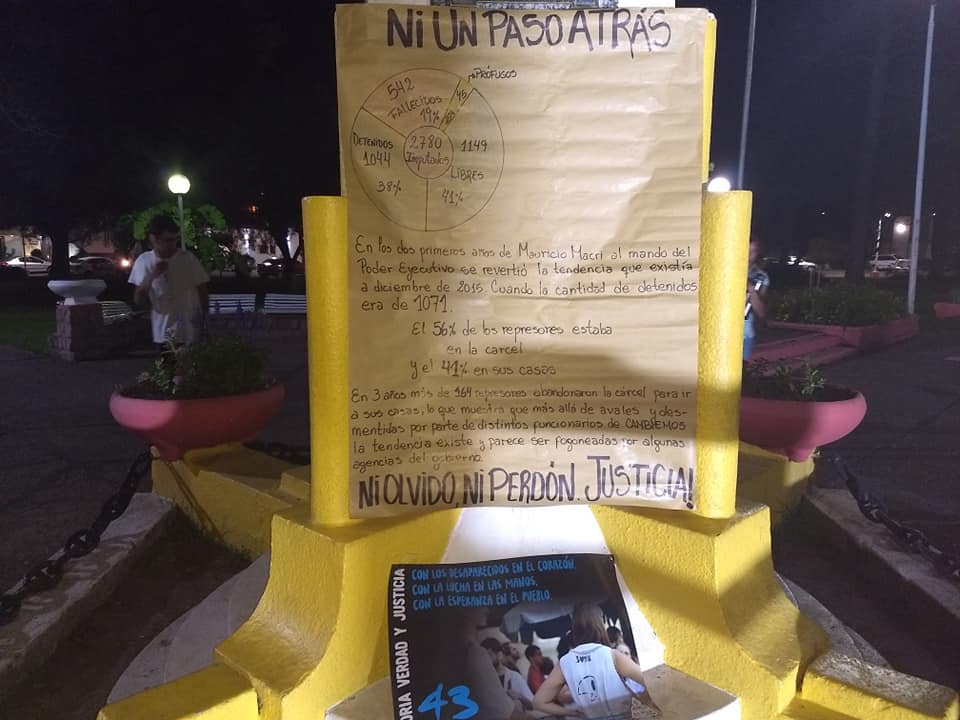 NI UN PASO ATRÁS
PRÓFUGOS
45
542
FALLECIDOS
19%
2780
Imputados
1149
LIBRES
41%
DETENIDOS
1044
38%
En los dos primeros años de Mauricio Macri al mando del
Poder Ejecutivo se revertió la tendencia que existía
a diciembre de 2015. Cuando la cantidad de detenidos
era de 1071.
El 56% de los represores estaba
en la carcel
y el 41% en sus casas
En 3 años más de 164 represores abandonaron la cárcel para ir
a sus casas, lo que muestra que más allá de avales y des-
mentidas por parte de distintos funcionarios de CAMBIEMOS
la tendencia existe y parece ser fogoneadas por algunas
agencias del gobierno.
NI OLVIDO, NI PERDÓN. JUSTICIA!
CON LOS DESAPARECIDOS EN EL CORAZÓN,
CON LA LUCHA EN LAS MANOS,
CON LA ESPERANZA EN EL PUEBLO.
ORIA VERDAD Y JUSTICIA
43